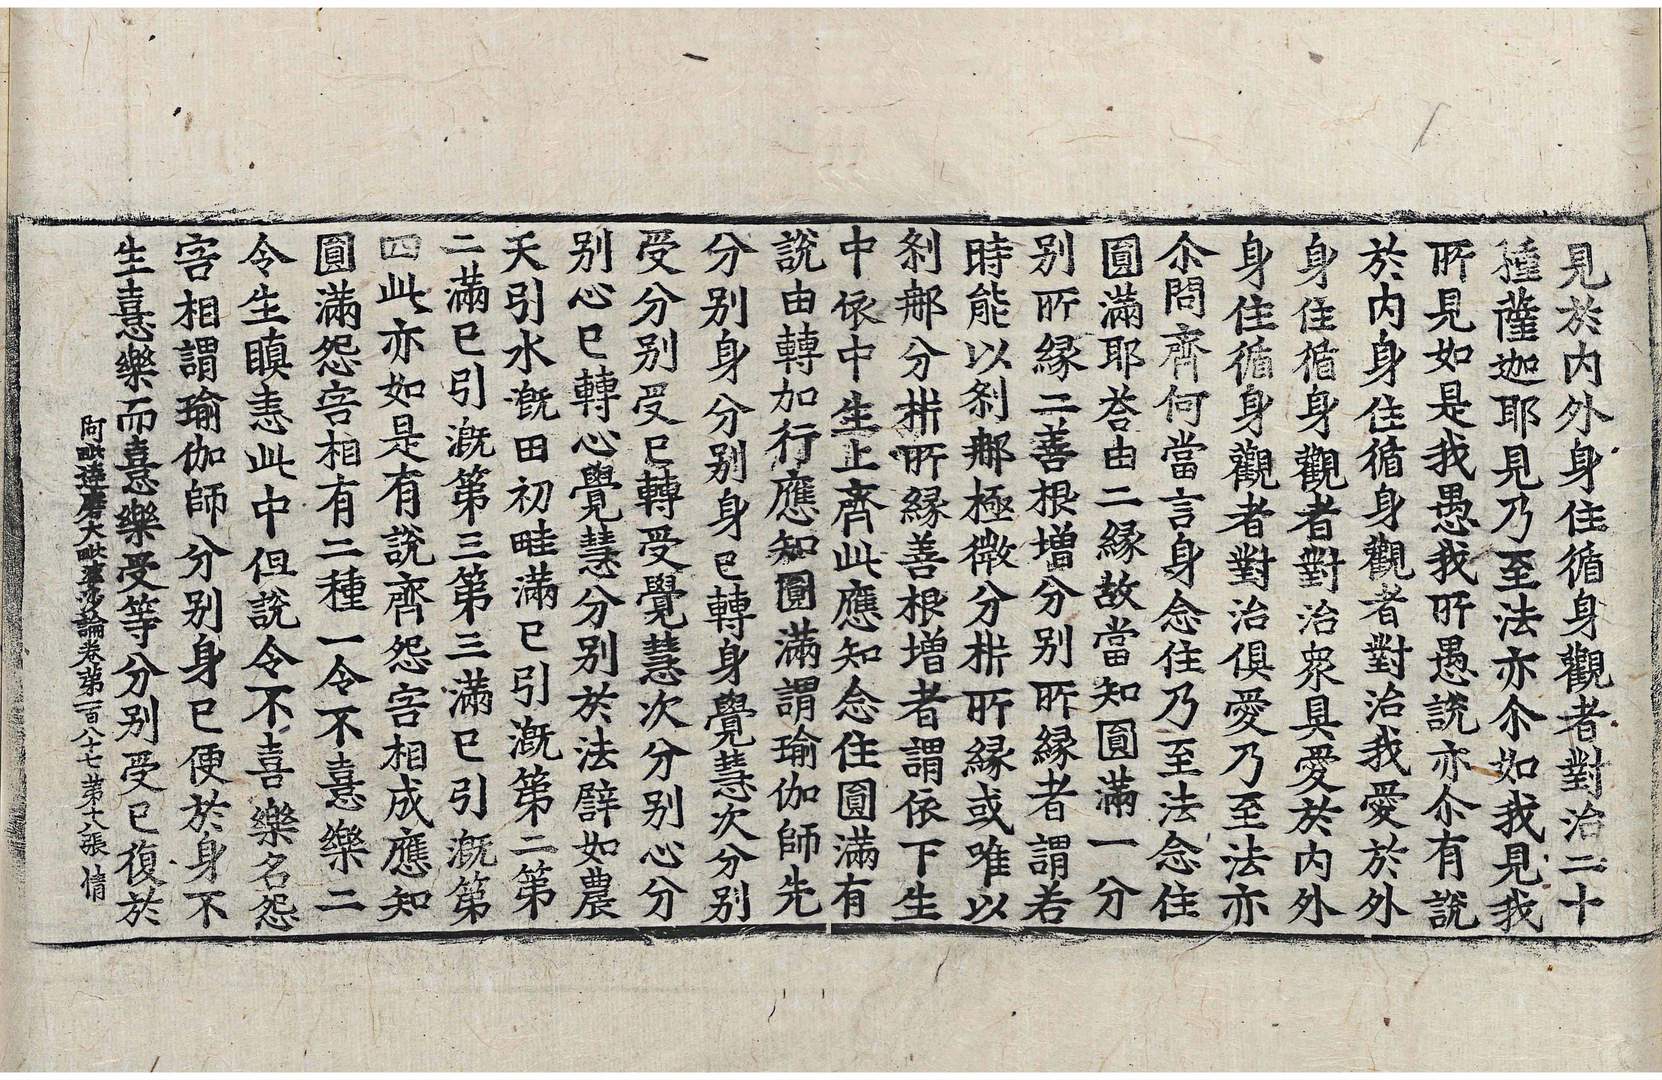 見於内外身住循身觀者對治二十
種薩迦耶見乃至法亦尒如我見我
所見如是我愚我所愚說亦尒有說
於内身住循身觀者對治我愛於外
身住循身觀者對治衆具愛於内外
身住循身觀者對治俱愛乃至法亦
尒問齊何當言身念住乃至法念住
圓滿耶荅由二緣故當知圓滿一分
别所縁二善根增分别所縁者謂若
時能以刹郍極微分㭊所縁或唯以
刹郍分㭊所縁善根增者謂依下生
中依中生上齊此應知念住圓滿有
說由轉加行應知圓滿謂瑜伽師先
分别身分别身已轉身覺慧次分别
受分别受已轉受覺慧次分别心分
别心已轉心覺慧分别於法譬如農
夫引水溉田初畦滿已引溉第二第
二滿已引溉第三第三滿已引溉第
四此亦如是有說齊怨害相成應知
圓滿怨害相有二種一令不憙樂二
令生瞋恚此中但說令不喜樂名怨
害相謂瑜伽師分别身已便於身不
生憙樂而憙樂受等分别受已復於
阿毗達磨大毗婆沙論卷第一百八十七 第十六張 情